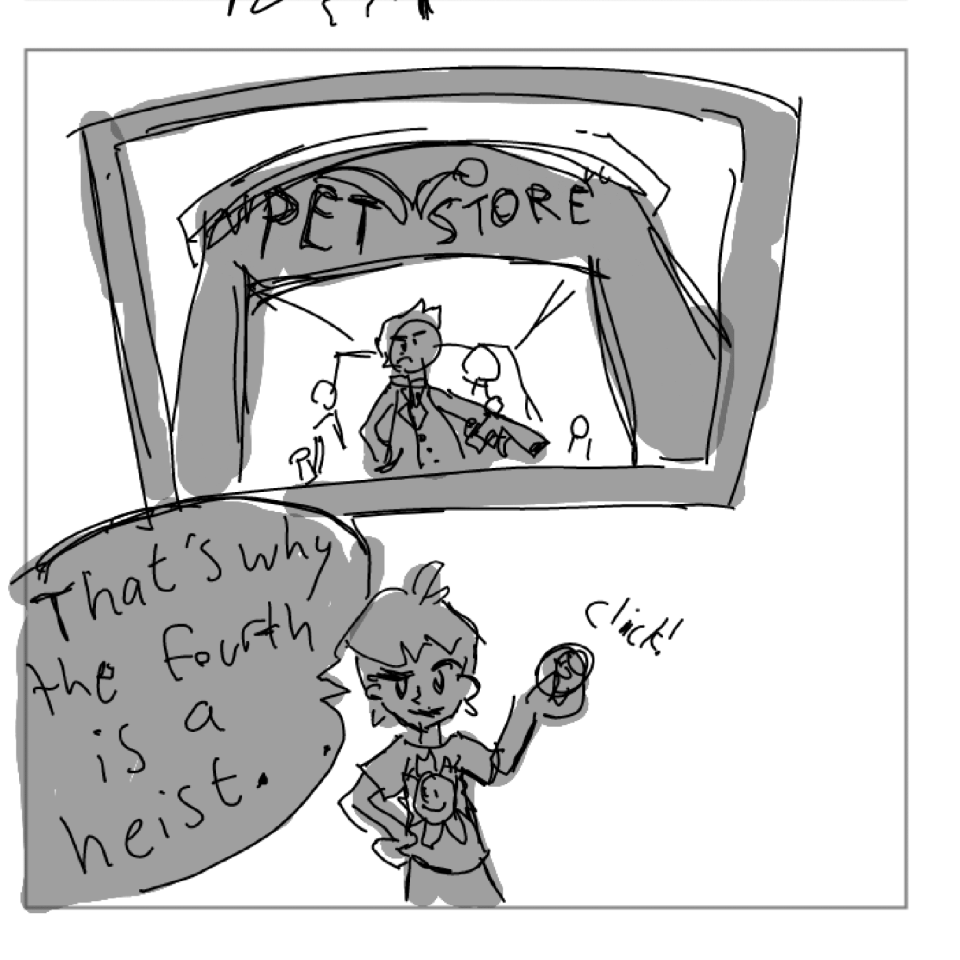 PET STORE
That's why
the fourth
is a
heist.
click!